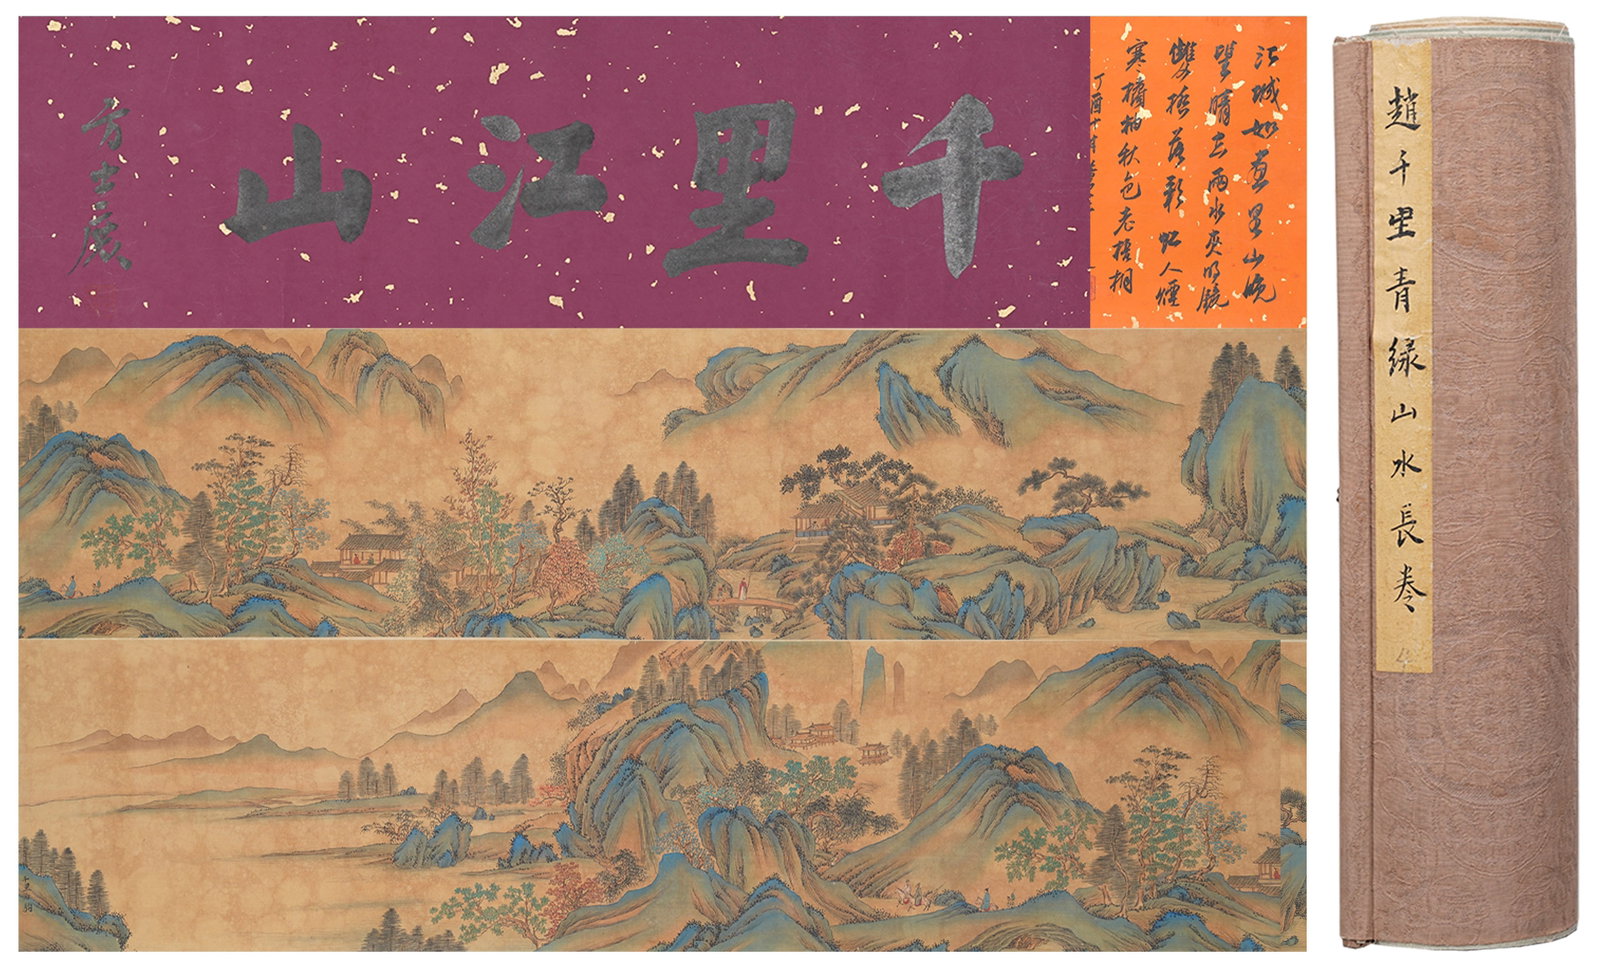 江城如畫里山晚
望晴空兩水夾明鏡
雙橋落彩虹人煙
寒橘柚秋色老梧桐
丁酉十月
千里江山
方士庶
趙千里青緑山水長卷